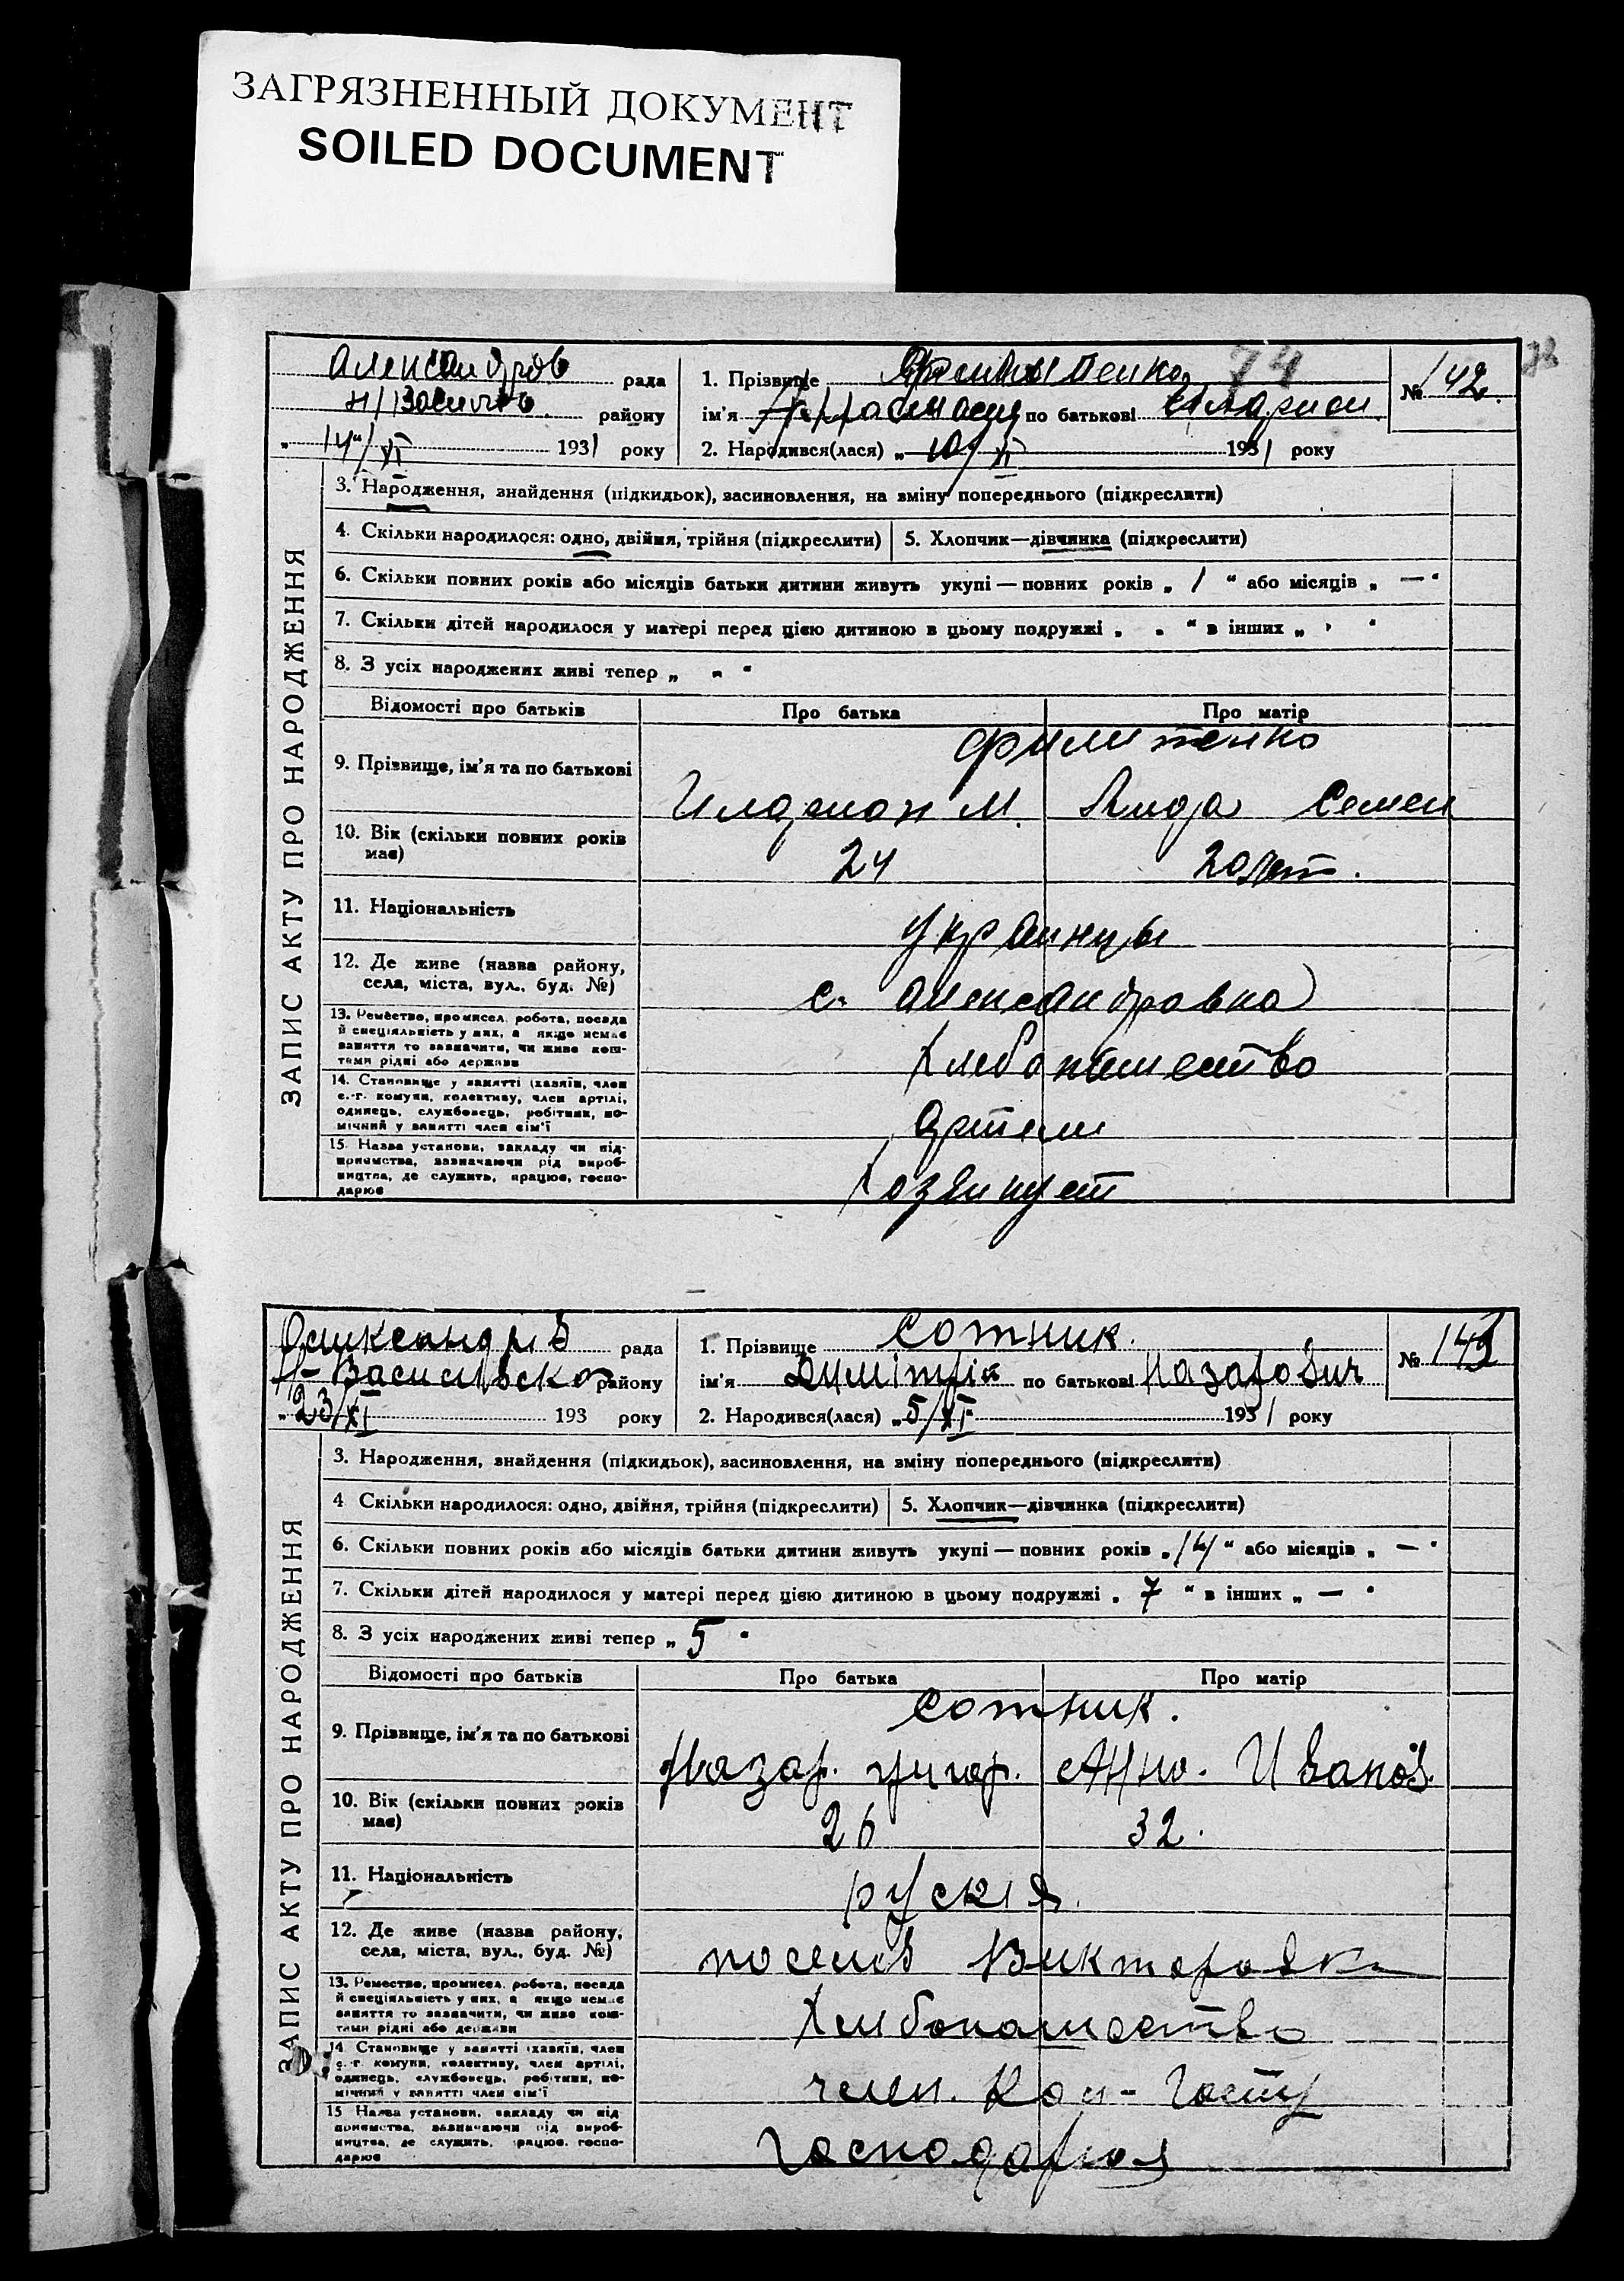 ЗАГРЯЗНЕННЫЙ ДОКУМЕНТ
SOILED DOCUMENT
78
74
Александров рада
Н/Василев району
„14“/XI 1931 року
1. Прізвище Филипенко
ім'я по батькові Иларион
2. Народився(лася) „10/XI 1931 року
№ 142.
ЗАПИС АКТУ ПРО НАРОДЖЕННЯ
3. Народження, знайдення (підкидьок), засиновлення, на зміну попереднього (підкреслити)
4. Скільки народилося: одно, двійня, трійня (підкреслити) 5. Хлопчик—дівчинка (підкреслити)
6. Скільки повних років або місяців батьки дитини живуть укупі — повних років „ 1 “ або місяців „ — “
7. Скільки дітей народилося у матері перед цією дитиною в цьому подружжі „ “ в інших „ “
8. З усіх народжених живі тепер „ “
Відомості про батьків Про батька Про матір
Филипенко
9. Прізвище, ім'я та по батькові Иларион М. Лида Семен
10. Вік (скільки повних років має) 24 20 лет.
11. Національність украинцы
12. Де живе (назва району, села, міста, вул., буд. №) с. Александровка
13. Ремество, промисел, робота, посада й спеціяльність у них, а якщо немає заняття то зазначити, чи живе коштами рідні або держави Хлебопашество
14. Становище у занятті (хазяїн, член с.-г. комуни, колективу, член артілі, одинець, службовець, робітник, помічний у занятті член сім'ї Артели
15. Назва установи, закладу чи підприємства, зазначаючи рід виробництва, де служить, працює, господарює
Олександрів рада
Н-Васильвсько району
„23/XI 193 року
1. Прізвище Сотник.
ім'я Димітрій по батькові Назарович
2. Народився(лася) „5/XI“ 1931 року
№ 143
ЗАПИС АКТУ ПРО НАРОДЖЕННЯ
3. Народження, знайдення (підкидьок), засиновлення, на зміну попереднього (підкреслити)
4 Скільки народилося: одно, двійня, трійня (підкреслити) 5. Хлопчик—дівчинка (підкреслити)
6. Скільки повних років або місяців батьки дитини живуть укупі — повних років „14“ або місяців „ — “
7. Скільки дітей народилося у матері перед цією дитиною в цьому подружжі „ 7 “ в інших „ — “
8. З усіх народжених живі тепер „ 5 “
Відомості про батьків Про батька Про матір
Сотник.
9. Прізвище, ім'я та по батькові Назар. григор. Анна. Иванов.
10. Вік (скільки повних років має) 26 32.
11. Національність руския.
12. Де живе (назва району, села, міста, вул., буд. №) посёлк Викторовка
13. Ремество, промисел, робота, посада й спеціяльність у них, а якщо немає заняття то зазначити, чи живе коштами рідні або держави Хлибопашество
14. Становище у занятті (хазяїн, член с.-г. комуни, колективу, член артілі, одинець, службовець, робітник, помічний у занятті член сім'ї член. Кол-Госпу
15 Назва установи, закладу чи підприємства, зазначаючи рід виробництва, де служить, працює, господарює Господарюя